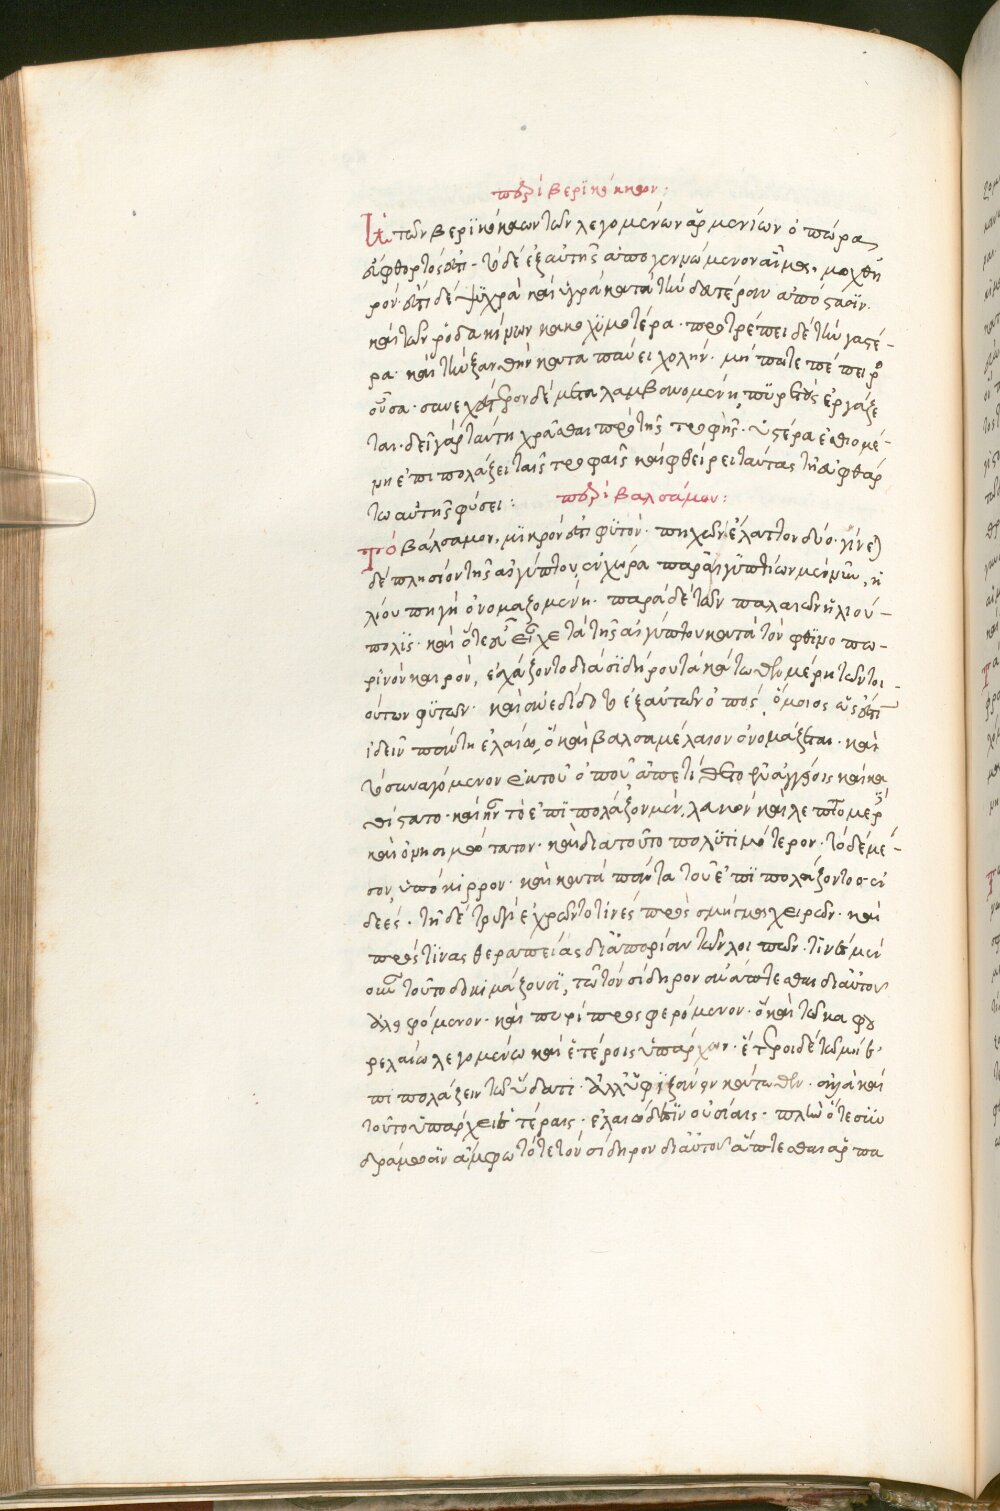 περὶ βερϊκόκκων:
Ἡ τῶν βερϊκόκκων τῶν λεγομένων ἀρμενίων ὀπώρα
εὔφθορτός ἐστι· τὸ δὲ ἐξ αὐτῆς ἀπογεννώμενον αἷμα, μοχθη
ρόν· ἔστι δὲ ψϋχρὰ καὶ ὑγρὰ κατὰ τὴν δευτέραν ἀπόστασϊν·
καὶ τῶν ῥοδακίνων κακοχϋμοτέρα· προτρέπει δὲ τὴν γαστέ-
ρα· καὶ τὴν ξανθὴν καταπαύει χολήν· μήποτε πέπειρος
οὖσα· συνεχέστερον δὲ μεταλαμβανομένη, πϋρετοὺς ἐργάζε
ται· δεῖ γὰρ ταύτῃ χρᾶσθαι πρὸ τῆς τροφῆς· ὑστέρα ἐσθιομέ-
νη ἐπιπολάζει ταῖς τροφαῖς καὶ φθείρει ταύτας τῇ εὐφθάρ
τω αὐτῆς φύσει:
περὶ βαλσάμου:
Τὸ βάλσαμον, μϊκρόν ἐστι φϋτόν· πηχῶν ἔλαττον δύο· γίνεται
δὲ πλησίον τῆς αἰγύπτου, ἐν χώρα παρὰ αἰγϋπτίων μὲν νῦν, ἡ
λίου πηγὴ ὀνομαζομένη· παρὰ δὲ τῶν παλαιῶν ἡλιού-
πολϊς· καὶ ὅτε οὖν εἶχε τὰ τῆς αἰγύπτου κατὰ τὸν φθϊνοπω-
ρϊνὸν καιρὸν, ἐχάραζον τὸ διὰ σϊδήρου τὰ κάτωθεν μέρη τῶν τοι-
ούτων φϋτῶν· καὶ συνεδίδοτο ἐξ αὐτῶν ὀπός, ὅμοιος ὡς ἔστιν
ἰδεῖν παντὶ ἐλαίω, ὃ καὶ βαλσαμέλαιον ὀνομάζεται· καὶ
τὸ συναγόμενον ἐκ τοῦ ὀποῦ ἀπετίθετο ἐν ἀγγείοις καὶ κα
θίστατο· καὶ ἦν τὸ ἐπϊπολάζον μὲν, λευκὸν καὶ λεπτομερὲς
καὶ ὀνησιμώτατον· καὶ διατοῦτο πολϋτιμότερον· τὸ δὲ μέ-
σον, ὑπόκιρρον· καὶ κατὰ πάντα τοῦ ἐπϊπολάζοντος ἐν
δεές· τῇ δὲ τρυγὶ ἐχρῶντο τϊνὲς πρὸς σμῆσμα χειρῶν· καὶ
πρὸς τϊνας θεραπείας δι' ἀπορίαν τῶν λοιπῶν· τϊνὲς μὲν
οὖν τοῦτο δοκιμάζουσϊ, τῶ τὸν σίδηρον συνάπτεσθαι δι' αὐτοῦ
ἀλειφόμενον· καὶ πυρὶ προσφερόμενον· ὃ καὶ τῶ καφου
ρελαίω λεγομένω καὶ ἑτέροις ὑπάρχειν· ἕτεροι δὲ τῶ μὴ ἐ-
πιπολάζειν τῶ ὕδατι· ἀλλ' ὑφϊζάνειν κάτωθεν· ἀλλὰ καὶ
τοῦτο ὑπάρχει ἑτέραις· ἐλαιώδεσϊν οὐσίαις· πλὴν ὅτε σϋν
δράμωσϊν ἄμφω τό τε τὸν σίδηρον δι' αὐτοῦ ἅπτεσθαι ἁρπα